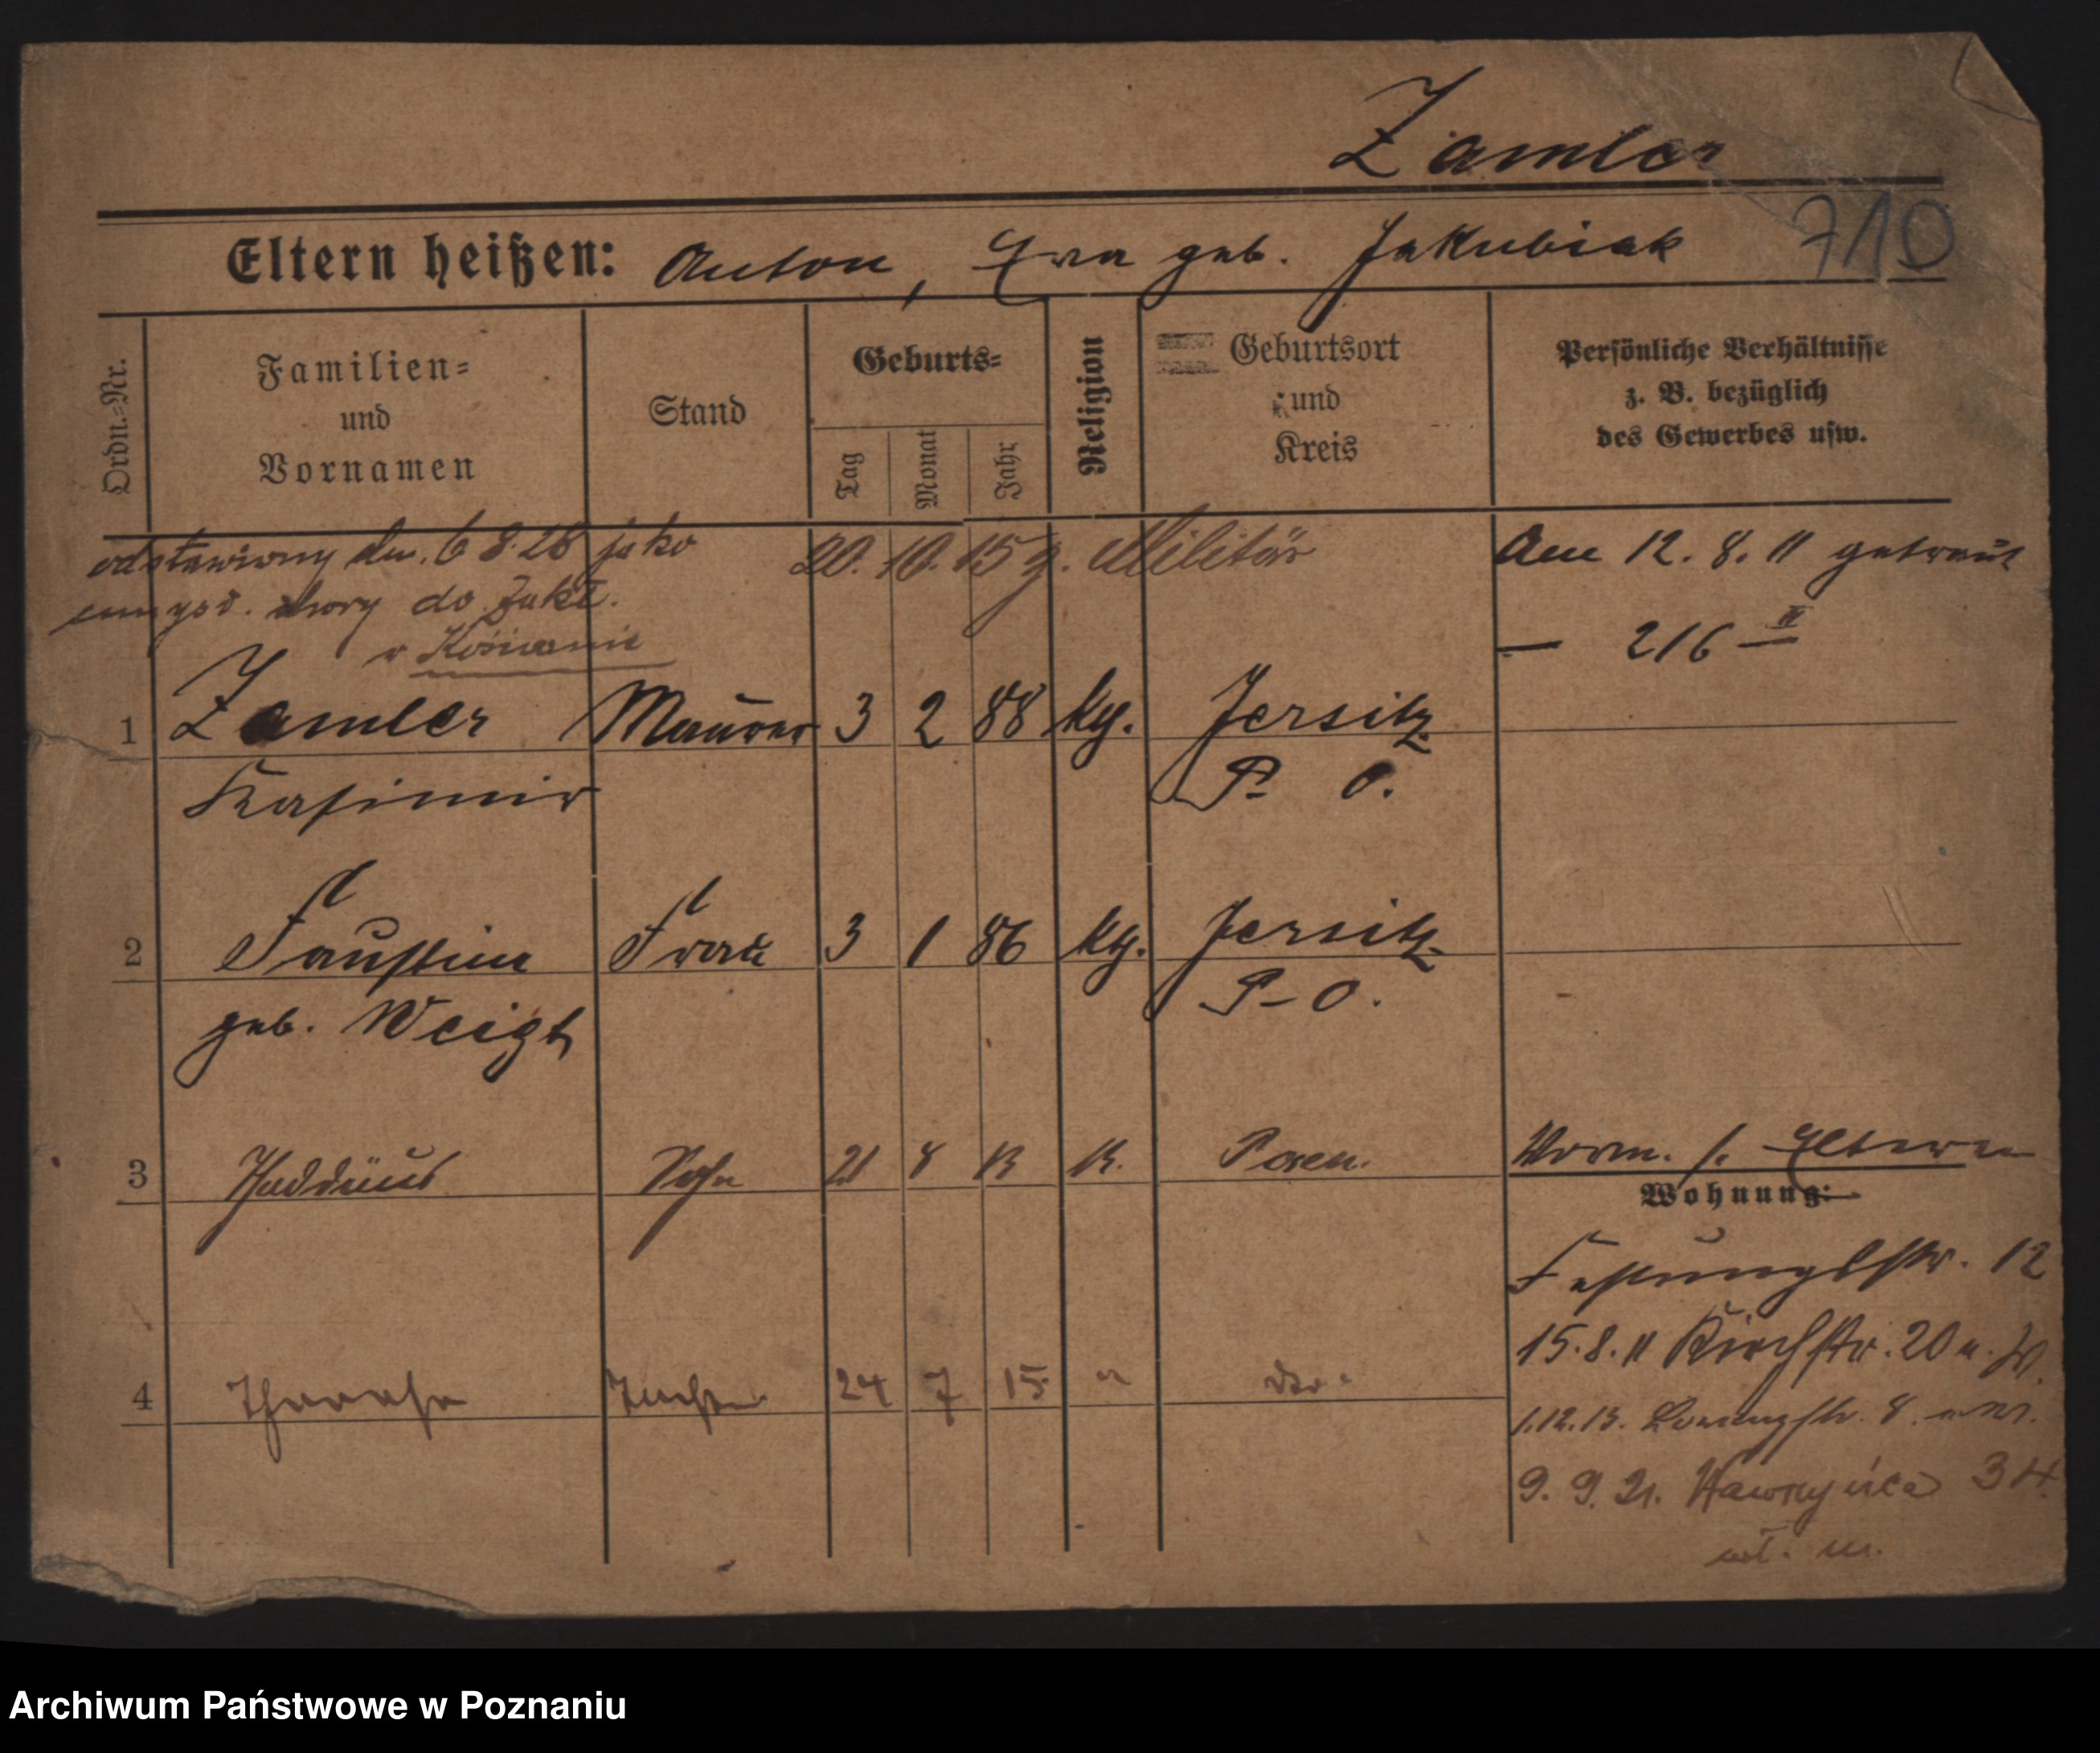 Zamler
Eltern heißen: Anton, Eva geb. Jakubiak
710
Ordn.=Nr.
Familien=
und
Vornamen
Stand
Geburts=
Tag
Monat
Jahr
Religion
Geburtsort
und
Kreis
Persönliche Verhältnisse
z. B. bezüglich
des Gewerbes usw.
odstawiony dn. 6 8. 28 jako
umysł. chory do Zakł.
w Kościanie
20. 10. 15 z. Militär
Am 12. 8. 11 getraut
— 216 II
1 Zamler Maurer 3 2 88 kg. Jersitz
Kasimir P. O.
2 Faustine Frau 3 1 86 kg. Jersitz
geb. Weigt P-O.
3 Thaddäus Sohn 21 8 13 K. Posen.
Vorm. s. Eltern
Wohnung:
Festungsstr. 12
15. 8. 11 Kirchstr. 20 u. W.
4 Therese Tocht 24 7 15 " dto.
1.12.13. 8.
9. 9. 21. Wawrzyńca 34.
wł. m.
Archiwum Państwowe w Poznaniu